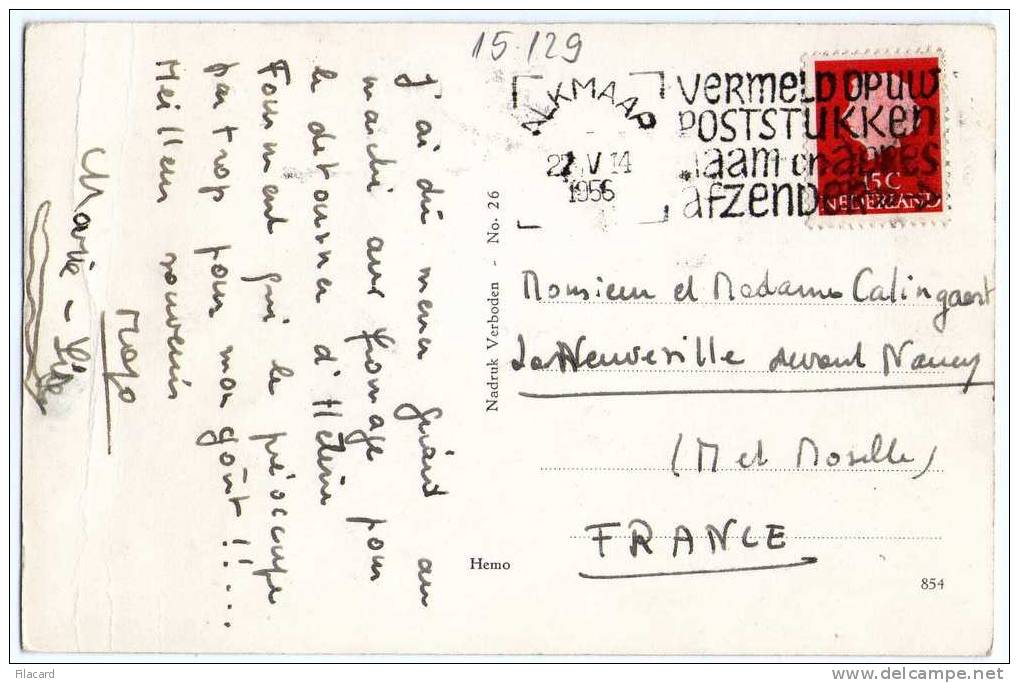 15/29
ALKMAAR
27 V 14
1956
VERMELD OP UW
POSTSTUKKEN
naam en adres
afzender
15 C
NEDERLAND
J'ai dû mener Gérard au
marché aux fromages pour
le détourner d'Hélène
Fourment qui le préoccupe
par trop pour mon goût !!....
Meilleur souvenir
Mayo
Marie-Lise
Nadruk Verboden - No. 26
Hemo
Monsieur et Madame Calingaert
La Neuveville devant Nancy
(M et Moselle)
FRANCE
854
Filacard
www.delcampe.net